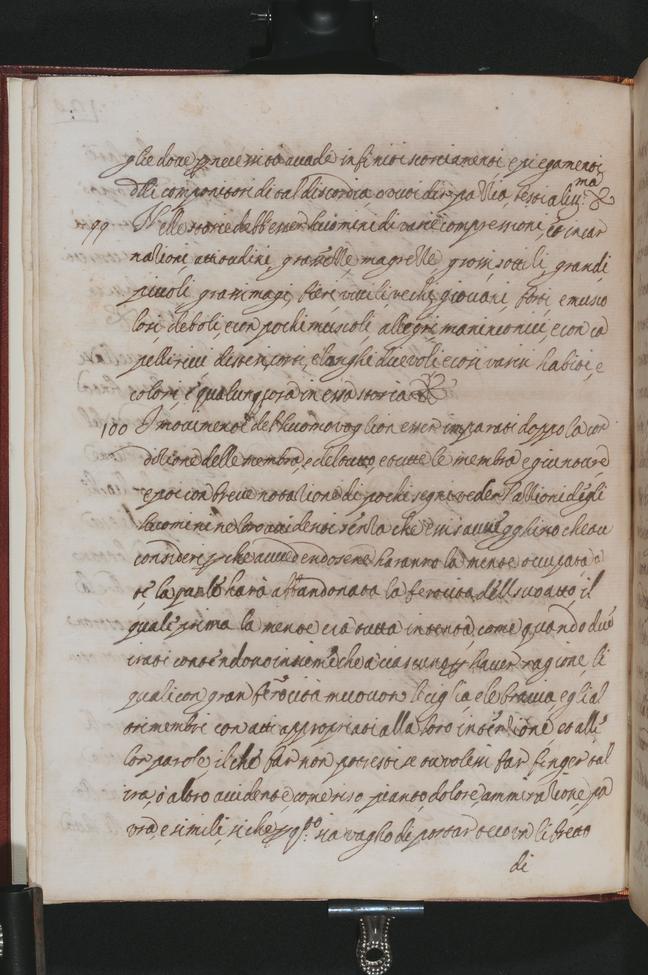 glie dove p necessità accade infiniti scorciamenti e piegamenti
delli componitori di tal discordia o vuoi dir pazzia bestialiss.ma &
99 Nelle storie debb' esser huomini di varie compressioni, et incar
nationi, attitudini, grassezze, magrezze grossi, sottili, grandi,
piccoli, grassi magri, fieri, civili, vecchi, giovani, forti, e musco
losi deboli, e con pochi muscoli, allegri, maninconici, e con ca
pelli ricci distesi, corti, e longhi, di evoli e così varii habiti, e
colori, e qualunq cosa in essa storia &
100 I movimenti del huomo voglion esser imparati doppo la cor
ditione delle membra, e del tutto, e tutte le membra e giunture
e poi con breve notatione di pochi segni veder l'attioni degli
huomini nelli accidenti senza che essi s'avvegghino che tu
consideri p che avvedendosene haranno la mente occupata a
te la quale harà abbandonata la ferocità del suo atto il
quale prima la mente era tutta intenta, come quando due
irati contendono insieme che a ciascuno p haver ragione, li
quali con gran ferocità muovono le ciglia, e le braccia, e gli al
tri membri con atti appropriati alla loro intentione et alle
lor parole, il che far non potresti se tu volessi far finger tal
ira, ò altro accidente come riso, pianto, dolore, ammiratione, pa
ura, e simili, si che p q.to sia vaghо di portar teco un libretto
di